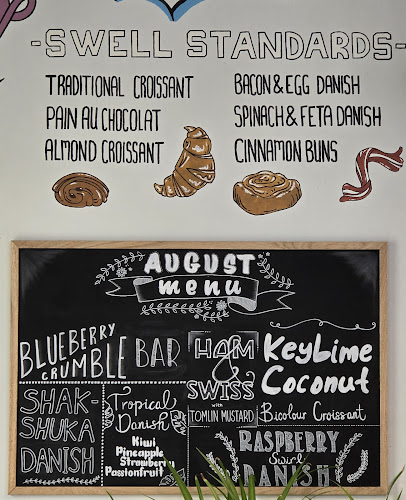 -SWELL STANDARDS-
TRADITIONAL CROISSANT
PAIN AU CHOCOLAT
ALMOND CROISSANT
BACON & EGG DANISH
SPINACH & FETA DANISH
CINNAMON BUNS
AUGUST
menu
BLUEBERRY
CRUMBLE BAR
HAM
&
SWISS
with
TOMLIN MUSTARD
KeyLime
Coconut
Bicolour Croissant
SHAK-
SHUKA
DANISH
Tropical
Danish
Kiwi
Pineapple
Strawberry
Passionfruit
RASPBERRY
Swirl
DANISH